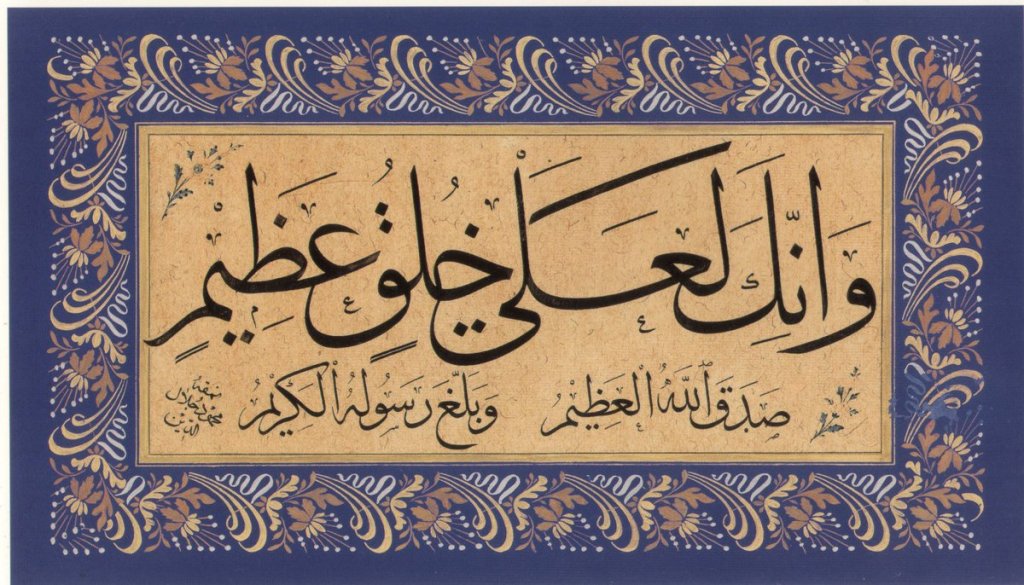 وَإِنَّكَ لَعَلَىٰ خُلُقٍ عَظِيمٍ
صَدَقَ ٱللهُ ٱلْعَظِيمُ وَبَلَّغَ رَسُولُهُ ٱلْكَرِيمُ
نمقه
محمد جلال
الدين